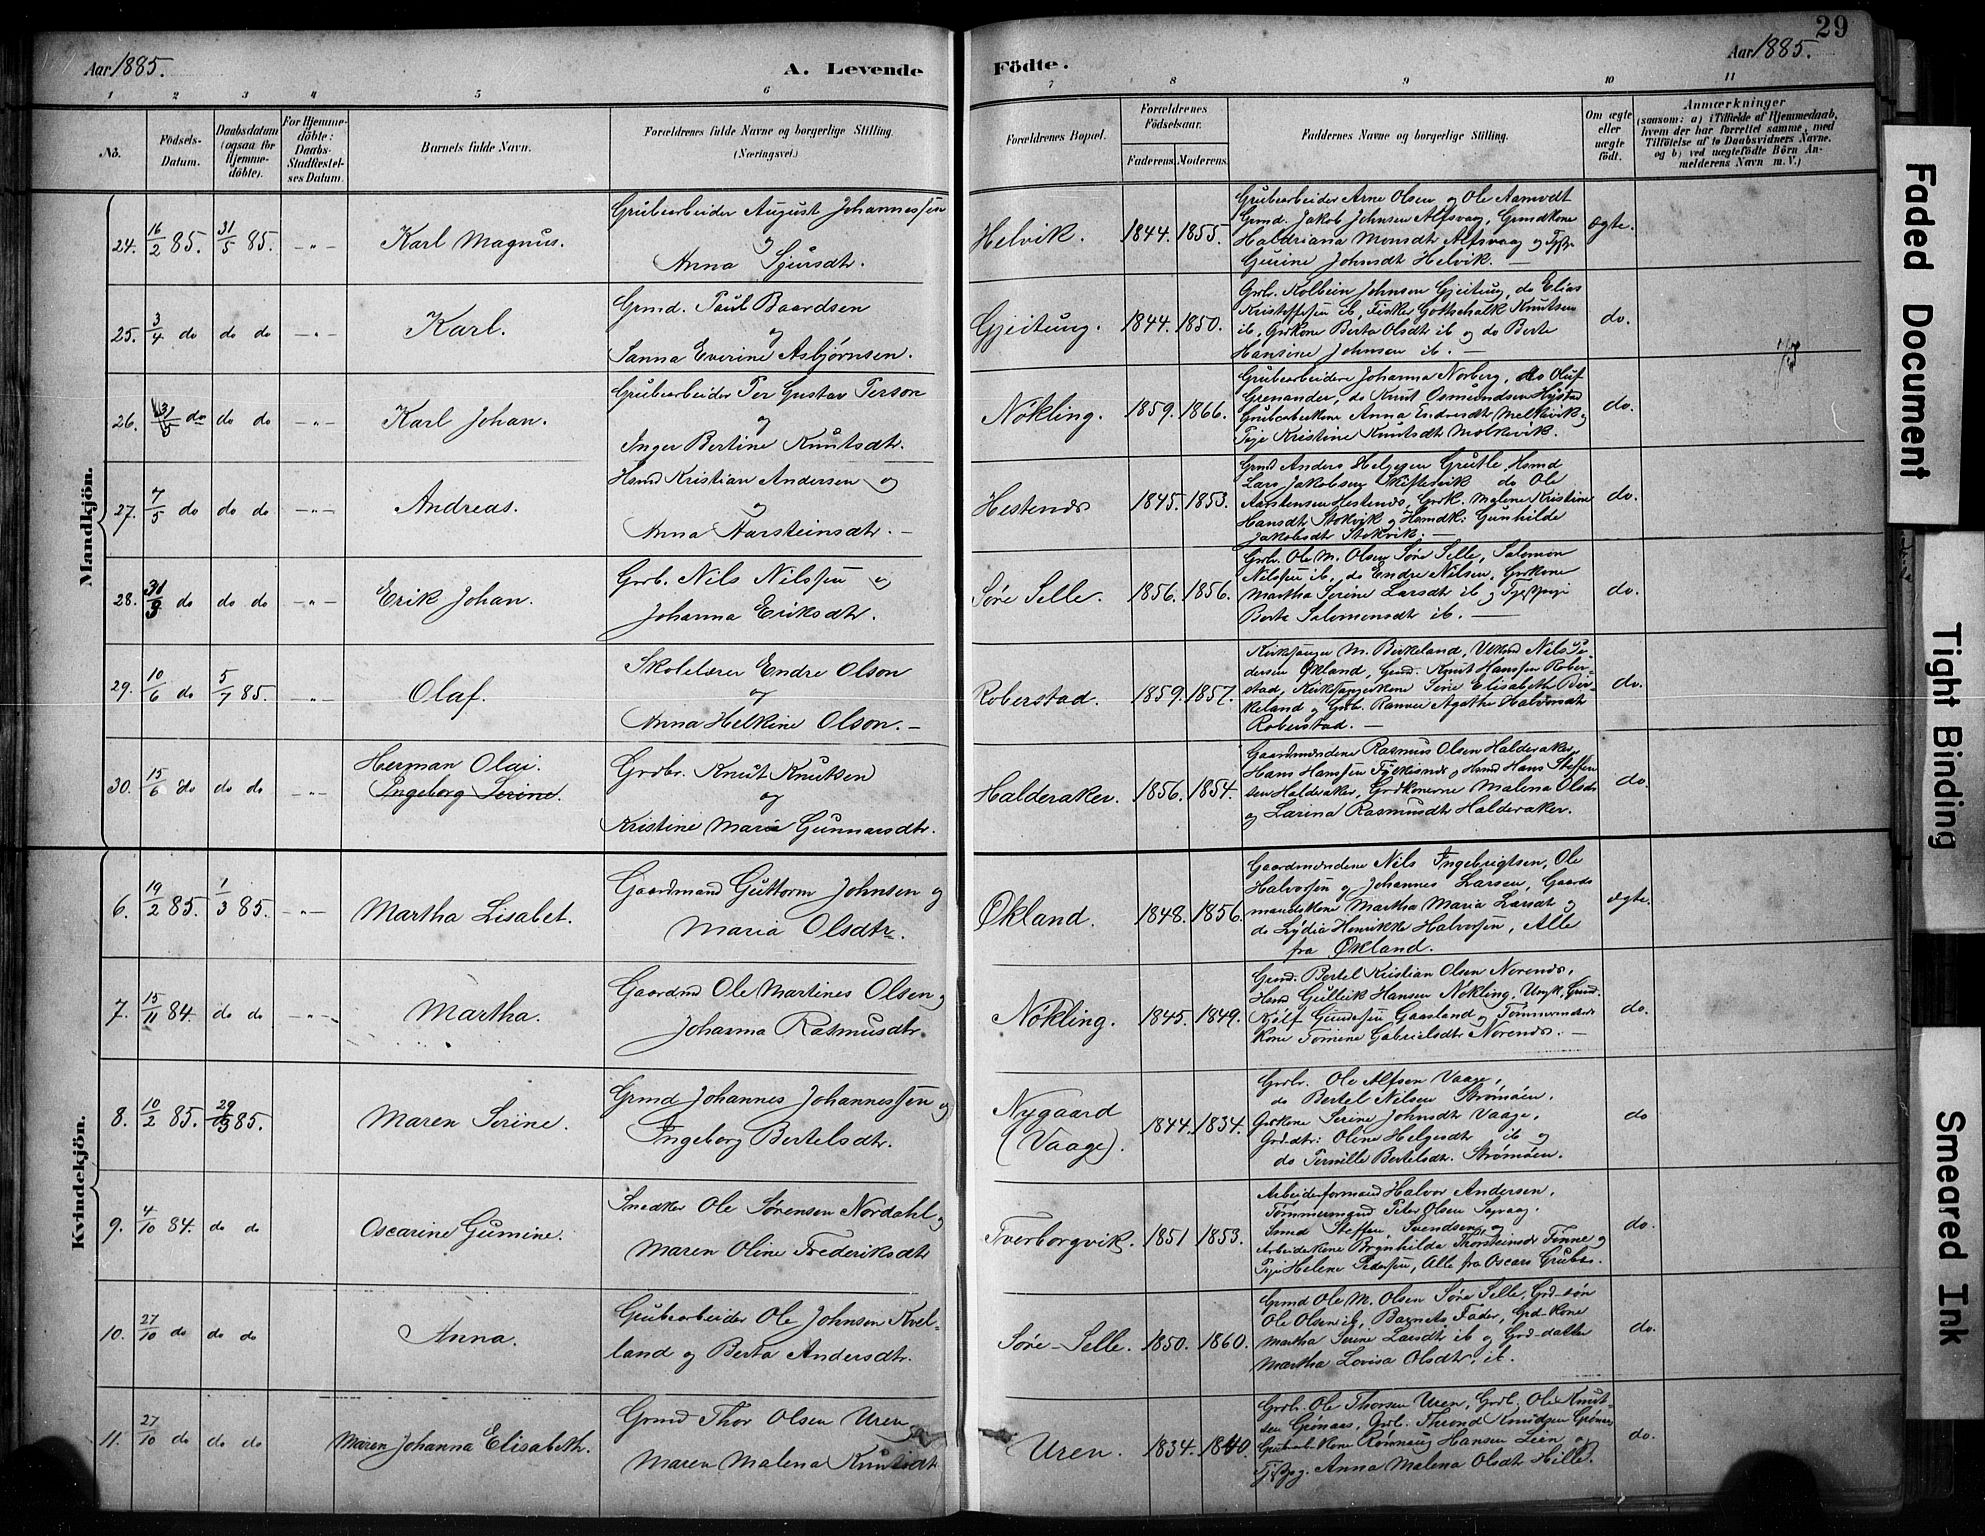 29
Aar 1885.
A. Levende
Födte.
Aar 1885.
1
2
3
4
5
6
7
8
9
10
11
No.
Födsels-
Datum.
Daabsdatum
(ogsaa for
Hjemme-
döbte).
For Hjemme-
döbte:
Daabs-
Stadfestel-
ses Datum.
Barnets fulde Navn.
Forældrenes fulde Navne og borgerlige Stilling.
(Næringsvei.)
Forældrenes Bopæl.
Forældrenes
Födselsaar.
Faderens.
Moderens.
Faddernes Navne og borgerlige Stilling.
Om ægte
eller
uægte
födt.
Anmærkninger
(saasom: a) i Tilfælde af Hjemmedaab,
hvem der har forrettet samme, med
Tilföielse af to Daabsvidners Navne,
og b) ved uægtefödte Börn An-
melderens Navn m. V.)
Mandkjön.
24. 16/2 85. 31/5 85. -"- Karl Magnus.
Grubearbeider August Johannessen
og
Anna Sjursdtr.
Helvik. 1844. 1855.
Grubearbeider Arne Olsen og Ole Aamodt
Grmd. Jakob Johnsen Alfsvag, Grmdkone
Haldriana Monsdtr Alfsvaag og
Gurine Johnsdt Helvik. —
ægte.
25. 3/4 do do do -"- Karl.
Grmd. Paul Baardsen
og
Sanna Everine Asbjørnsen.
Gjeitung. 1844. 1850.
Grbr. Kolbein Johnsen Gjeitung, do Elias
Kristoffersen ib, Fisker Gottschalk Knutsen
ib, Grkone Berta Olsdt ib og do Berte
Hansine Johnsen ib. —
do.
26. do do do -"- Karl Johan.
Grubearbeider Per Gustav Person
og
Inger Bertine Knutsdtr.
Nökling. 1859. 1866.
Grubearbeidere Johanna Norberg, do Oluf
Grenander, do Knut Osmundsen Hystad
Anna Endresdt Melkevik og
Pige Kristine Knutsdt Melkevik.
do.
27. 7/5 do do do -"- Andreas.
Hsmd Kristian Andersen og
Anna Aarsteinsdtr. —
Hestenæs 1845. 1853.
Grmd Anders Helgesen Grutle, Hsmd
Lars Jakobsen Skiftesvik do Ole
Aarstensen Hestenæs, Grdk. Malene Kristine
Hansdt Stokvik og Hsmdk: Gunhilde
Jakobsdt Stokvik. —
do.
28. 31/3 do do do -"- Erik Johan.
Grb. Nils Nilssen og
Johanna Eriksdtr.
Søre Selle. 1856. 1856.
Grbr. Ole M. Olsen Søre Selle, Salomon
Nilssen ib, do Endre Nilsen, Grkone
Martha Serine Larsdt ib og
Berta Salomonsdt ib. —
do.
29. 10/6 do 5/7 85. -"- Olaf.
Skolelærer Endre Olson
og
Anna Helkine Olson. —
Roberstad. 1859. 1857.
Kirkesanger M. Birkeland, Nils Pe-
dersen Økland, Grmd. Knut Hansen Rober-
stad, Kirkesangerkone Sine Elisabeth Bir-
keland og Grbr. Rannei Agathe Halvorsdt
Roberstad. —
do.
30. 15/6 do do do -"- Herman Olai.
Ingeborg Serine.
Grdbr. Knut Knutsen
og
Kristine Maria Gunnarsdtr.
Halderaker. 1856. 1854.
Gaardmændene Rasmus Olsen Halderaker,
Hans Hanssen Fylkesnes, Hsmd Hans Steffen
sen Halderaker, Grdkonerne Malena Olsdt
og Larina Rasmusdtr Halderaker.
do.
Kvindekjön.
6. 19/2 85. 1/3 85. -"- Martha Lisabet.
Gaardmand Guttorm Johnsen og
Maria Olsdtr.
Økland. 1848. 1856.
Gaardmændene Nils Ingebrigtsen, Ole
Halvorsen og Johannes Larsen, Gaard-
mandskone Martha Maria Larsdt og
do Lydia Henrikke Halvorsen, Alle
fra Økland.
ægte.
7. 15/11 84. do do -"- Martha.
Gaardmd Ole Martines Olsen og
Johanna Rasmusdtr.
Nökling. 1845. 1849.
Grmd. Bertel Kristian Olsen Norenæs,
Hsmd Gullik Hansen Nökling, Ungk. Grmd.
Kjölf Gundersen Gaasland og Tömmermands
kone Tomine Gabrielsdtr Norenæs. —
do.
8. 10/2 85. 29/3 85. Maren Serine.
Grmd Johannes Johannessen og
Ingeborg Bertelsdtr.
Nygaard
(Vaage). 1844. 1834.
Grbr. Ole Alfsen Vaage,
do Bertel Nilsen Strømøen.
Grkone Serine Johnsdt Vaage,
Grd-dtr: Oline Helgesdt ib og
do Pernille Bertelsdtr. Strømøen.
do
9. 4/10 84. do do Oscarine Gurine.
Snedker Ole Sørensen Nordahl og
Maren Oline Frederiksdtr
Tverborgvik. 1851 1853.
Arbeidsformand Halvor Andersen,
Tömmermand Peter Olsen
Smed Steffen Svendsen, og
Arbeiderkone Brynhilda Thorsteinsdt Finne og
Pige Helene Pedersen, Alle fra Oscars Grube.
do.
10. 27/10 do do do Anna.
Grubearbeider Ole Johnsen Kvel-
land og Berta Andersdtr.
Søre-Selle. 1850. 1860.
Grmd Ole M. Olsen Søre Selle, Grd-søn
Ole Olsen ib, Barnets Fader, Grd-kone
Martha Serine Larsdt ib og Grd-datter
Martha Lovisa Olsdt, ib.
do.
11. 27/10 do do do Maren Johanna Elisabeth.
Grmd Thor Olsen Uren
Maren Malena Knutsdt
Uren. 1834. 1840.
Grbr. Ole Thorsen Uren, Grbr. Ole Knut-
sen Grönaas, Grbr. Thrond Knudsen Grönaas
Rønnaug Hansen Lien og
Anna Malena Olsdt Hille.
do.
Faded Document
Tight Binding
Smeared Ink